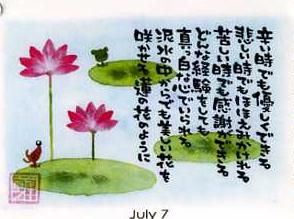 辛い時でも優しくできる。
悲しい時でもほほえみかけれる。
苦しい時でも感謝ができる。
どんな経験をしても
真っ白な心でいられる。
泥水の中からでも美しい花を
咲かせる蓮の花のように
July 7